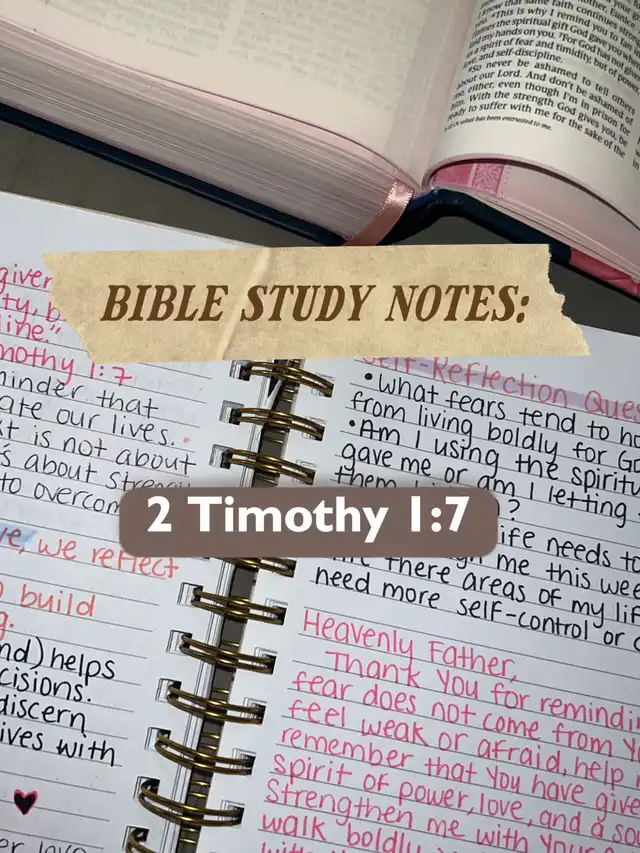 know that same faith continues
you. ⁶This is why I remind you to fan
flames the spiritual gift God gave you wh
laid my hands on you. ⁷For God has not giv
a spirit of fear and timidity, but of po
love, and self-discipline.
⁸So never be ashamed to tell other
about our Lord. And don't be ashamed of
me, either, even though I'm in prison for
him. With the strength God gives you, be
ready to suffer with me for the sake of the
what has been entrusted to me.
BIBLE STUDY NOTES:
2 Timothy 1:7
given
ty, b
line."
mothy 1:7
minder that
ate our lives.
t is not about
s about strength
to overcom
ve, we reflect
build
g.
nd) helps
cisions.
discern
ives with
er love
Self-Reflection Ques
•What fears tend to ho
from living boldly for Go
•Am I using the spiritu
gave me or am I letting
them ?
ife needs to
me this wee
there areas of my lif
need more self-control or
Heavenly Father,
Thank You for remindi
fear does not come from Y
feel weak or afraid, help
remember that You have give
spirit of power, love, and a so
Strengthen me with Your
walk boldly